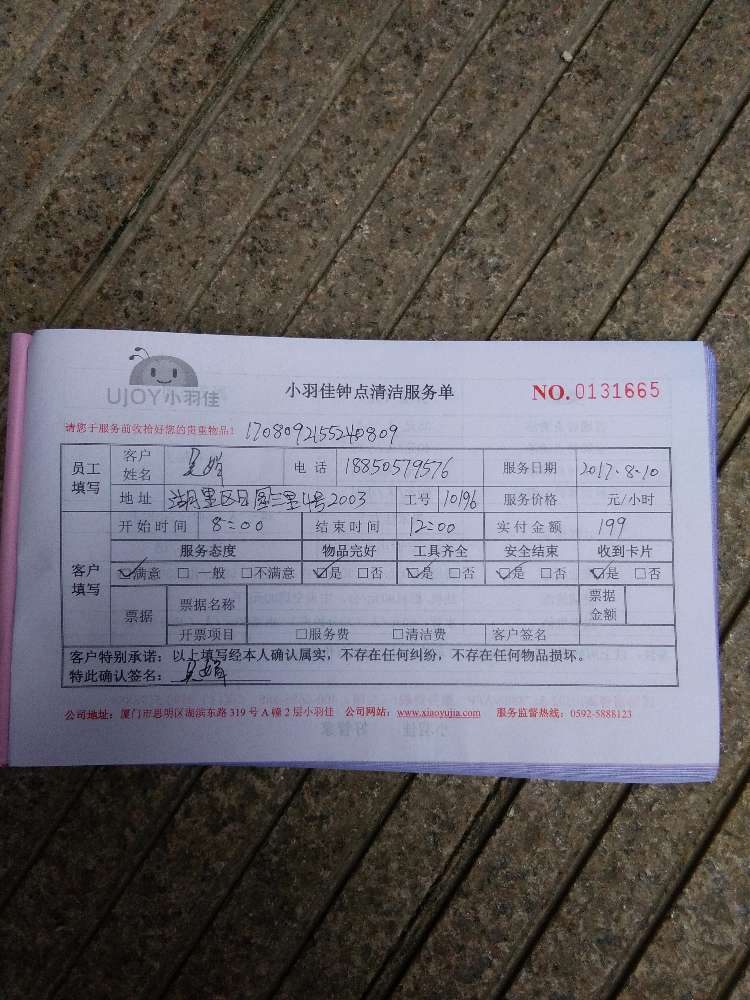 UJOY小羽佳
小羽佳钟点清洁服务单
NO. 0131665
请您于服务前收拾好您的贵重物品! 1708092155240809
员工填写 客户姓名 吴 电话 18850579576 服务日期 2017.8.10
地址 湖里区 三里4号2003 工号 10196 服务价格 元/小时
开始时间 8:00 结束时间 12:00 实付金额 199
客户填写 服务态度 物品完好 工具齐全 安全结束 收到卡片
☑满意 □一般 □不满意 ☑是 □否 ☑是 □否 ☑是 □否 ☑是 □否
票据 票据名称 票据金额
开票项目 □服务费 □清洁费 客户签名
客户特别承诺:以上填写经本人确认属实,不存在任何纠纷,不存在任何物品损坏。
特此确认签名: 吴
公司地址:厦门市思明区湖滨东路 319 号 A 幢 2 层小羽佳 公司网站:www.xiaoyujia.com 服务监督热线:0592-5888123